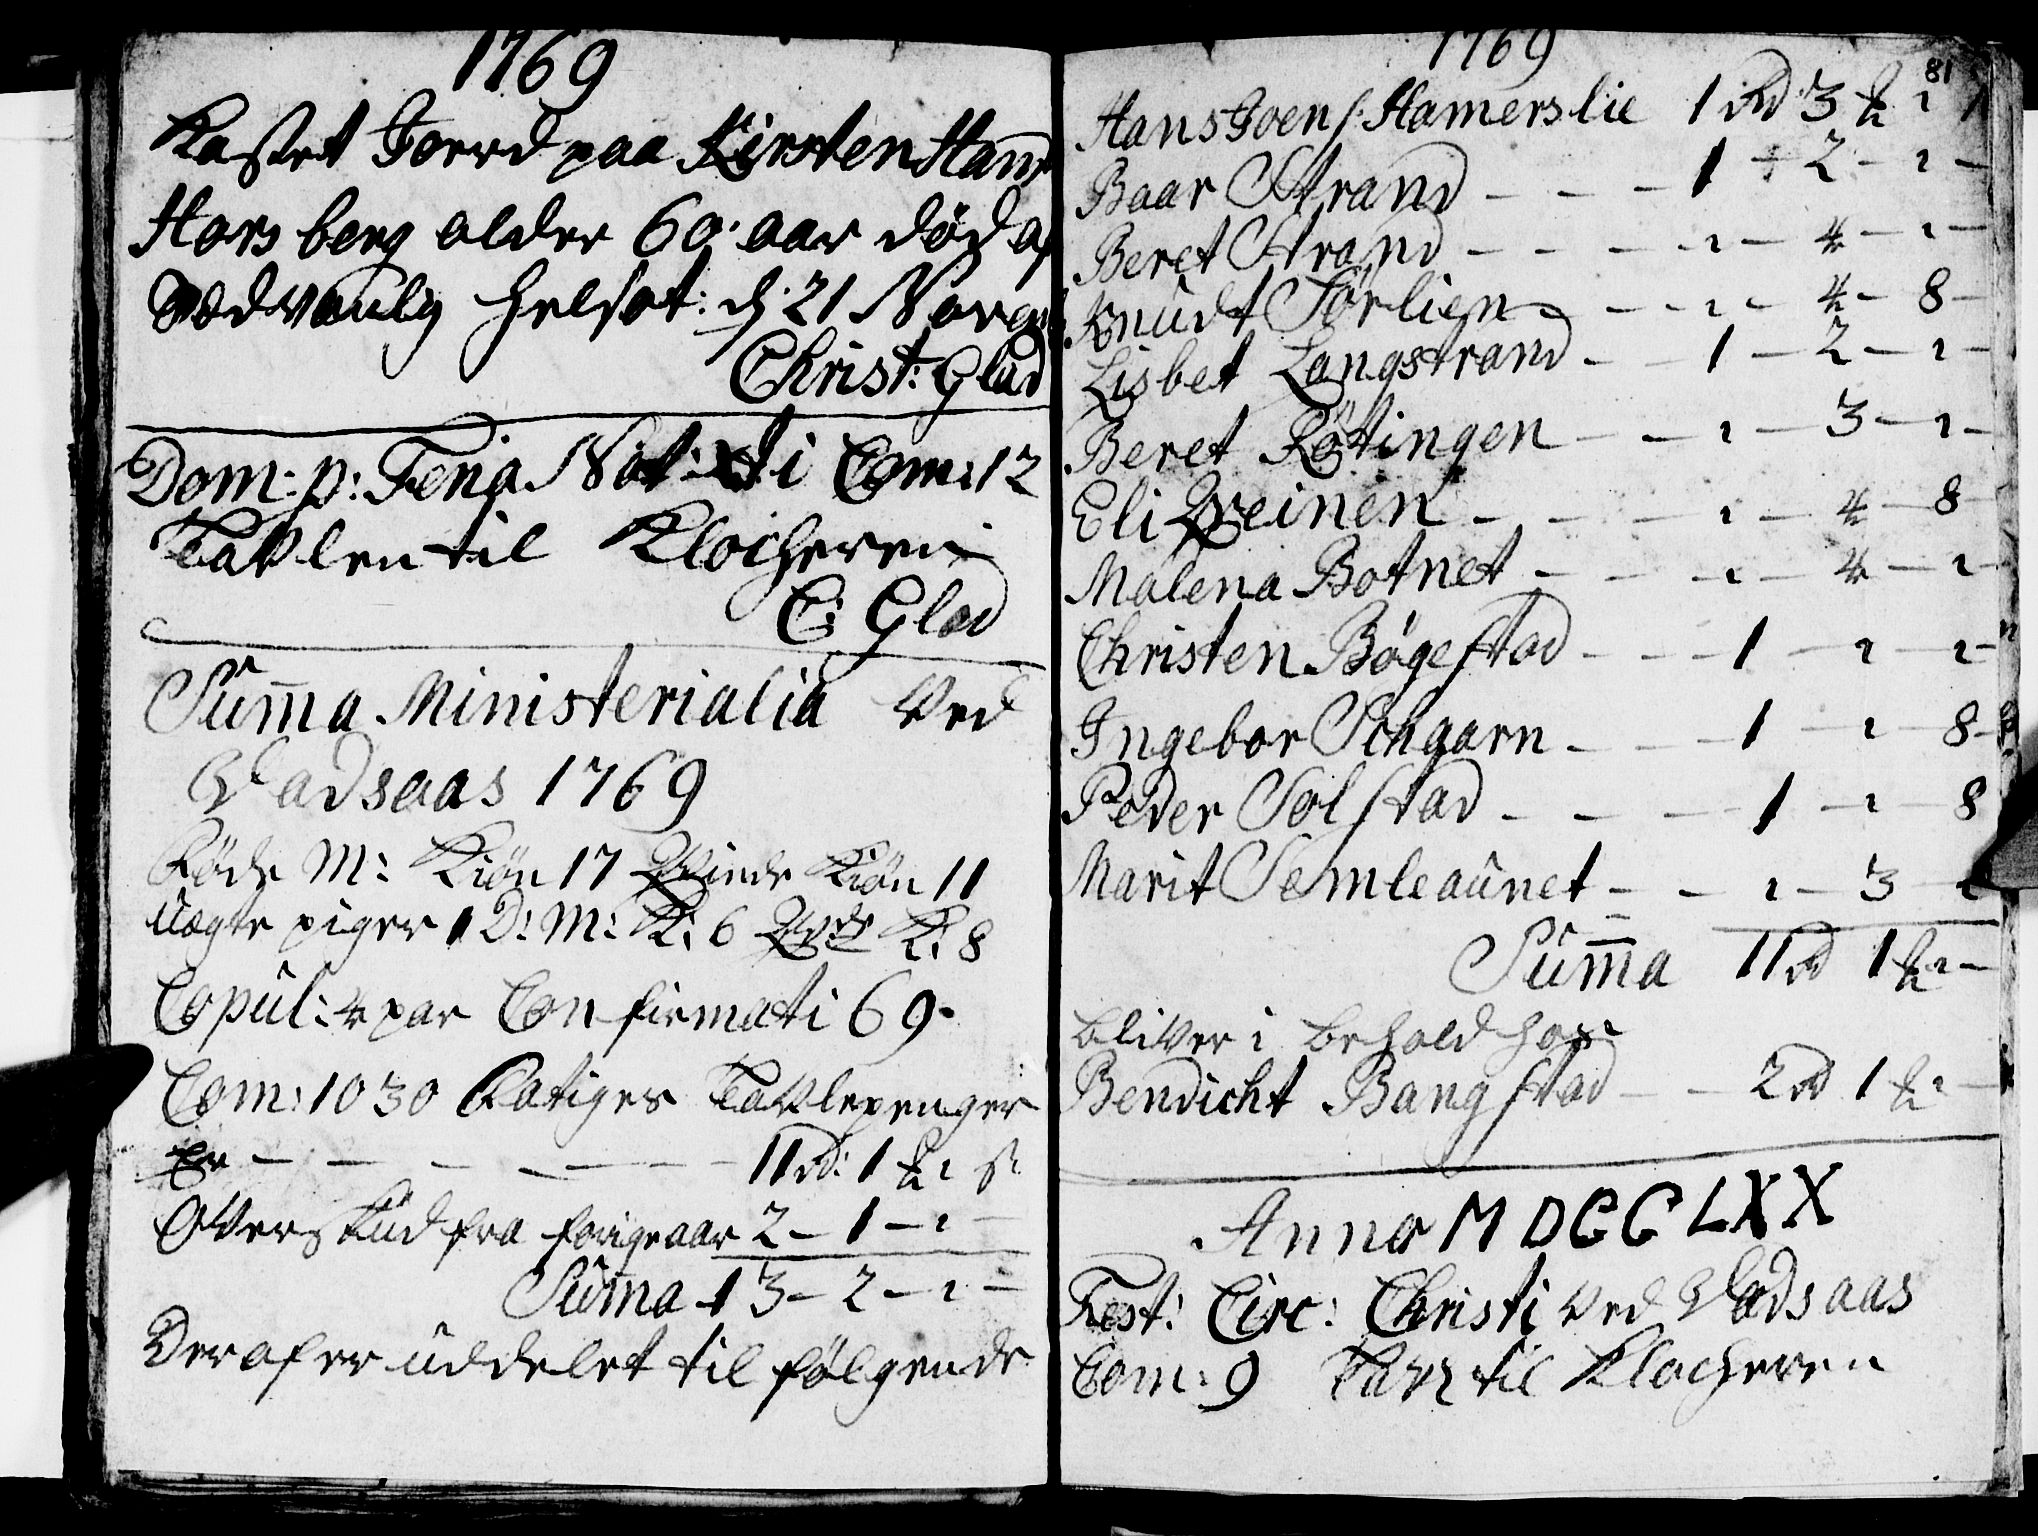 1769
Kastet Joerd paa Kirsten Hans
Horsberg alder 60 aar død af
Sædvanlig Helsot: d: 21 Novem
Christ: Glad
Dom: p: Feria Nat: Xti Com: 12
Tavlen til Klocheren
C: Glad
Sum̄a Ministerialia ved
Vadsaas 1769
Føde M: Kiön 17 Qvinde Kiön 11
Uægte piger 1 D: M: K: 6 Qvde K: 8
Copul: 4 par Confirmati 69.
Com: 1030 Fatiges Tavlepenger
Er — — — — — — 11 rd: 1 ₰ " s
Overskud fra forige aar 2 — 1 — " —
Sum̄a 13 — 2 — " —
Deraf er uddelet til følgende
1769
81
Hans Joens: Hamerslie 1 rd 3 ₰ "
Baar Strand — — — 1 — 2 — " —
Beret Strand — — — " — 4 — " —
Knudt Sörlien — — " — 4 — 8 —
Lisbet Langstrand — — 1 — 2 — " —
Beret Røtingen — — " — 3 — " —
Eli Qveinen — — — " — 4 — 8
Malena Botnet — — — " — 4 — " —
Christen Bøgestad — — — 1 — " — " —
Ingebor Schgarn — — — 1 — " — 8 —
Peder Solstad — — — 1 — " — 8
Marit Semleaunet — — " — 3 — "
Sum̄a 11 rd 1 ₰ " —
bliver i behold hos
Bendicht Bangstad — — 2 rd 1 ₰ " —
Anno MDCCLXX
Fest: Circ: Christi ved Vadsaas
Com: 9 Tavl: til Klocheren